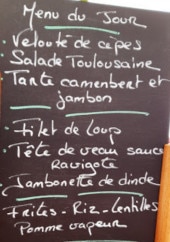 Menu du Jour
· Velouté de cèpes
· Salade Toulousaine
Tarte camembert et
jambon
· Filet de Loup
· Tête de veau sauce
Ravigote
Jambonette de dinde
Frites - Riz - Lentilles
Pomme vapeur